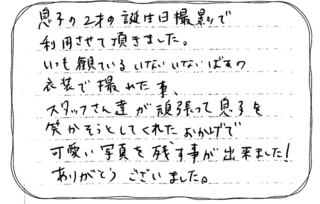 息子の2才の誕生日撮影で
利用させて頂きました。
いつも観ている いないいないばぁの
衣装で撮れた事、
スタッフさん達が頑張って息子を
笑かそうとしてくれたおかげで
可愛い写真を残す事が出来ました!
ありがとうございました。